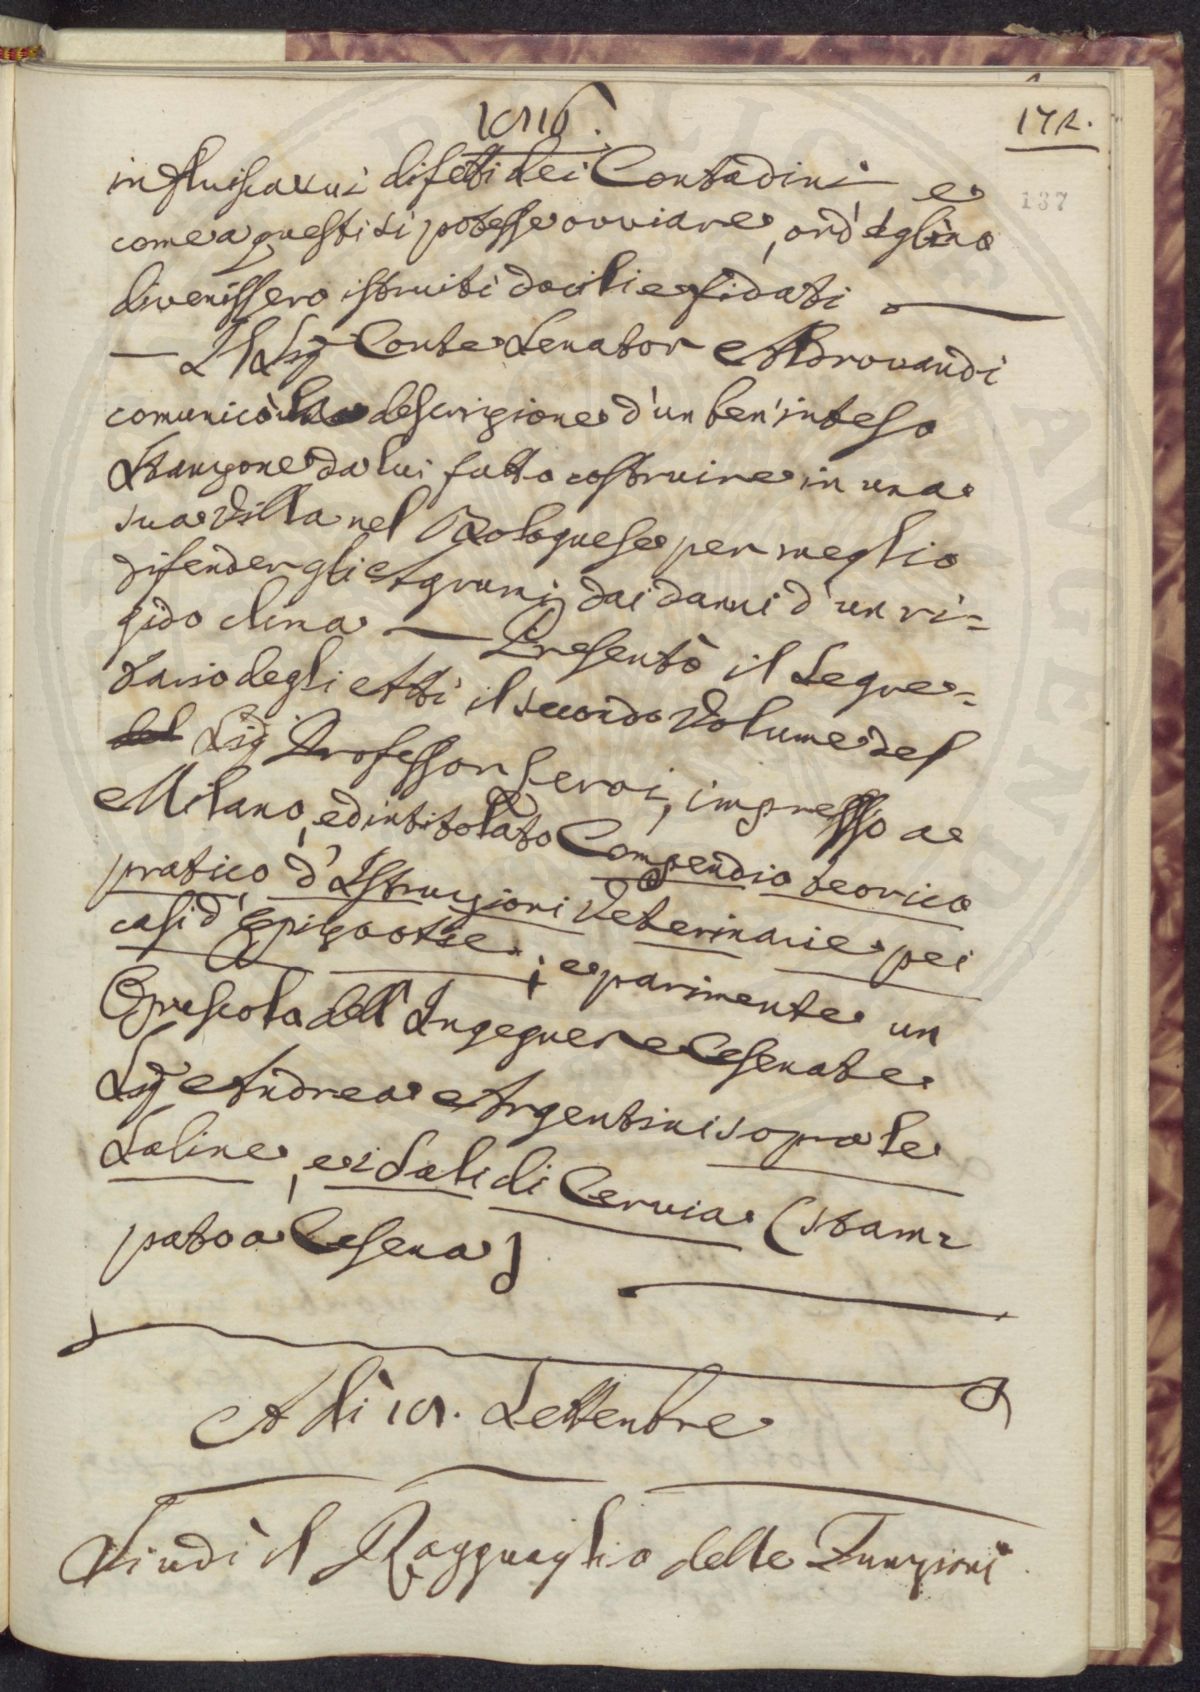 1816.
172.
137
influiscaxui difetti dei Contadini e
come a questi si potesse ovviare, ond'eglino
divenissero istruiti docili e fidati
— Il Sig.r Conte Senator Aldrovandi
comunicò la descrizione d'un ben'inteso
Stanzone da lui fatto costruire in una
sua Villa nel Bolognese per meglio
difender gli Agrumi dai danni d'un ri=
gido clima — Presentò il Segre=
tario degli Atti il secondo Volume del
Sig.r Professor Leroi, impresso a
Milano, ed intitolato Compendio teorico
pratico d'Istruzioni Veterinarie pei
casi d'Epizootie; e parimente un
Opuscolo dell'Ingegnere Cesenate
Sig.r Andrea Argentini sopra le
Saline, e i Sali di Cervia (stam=
pato a Cesena)
A dì 18. Settembre
Si udì il Ragguaglio delle Funzioni